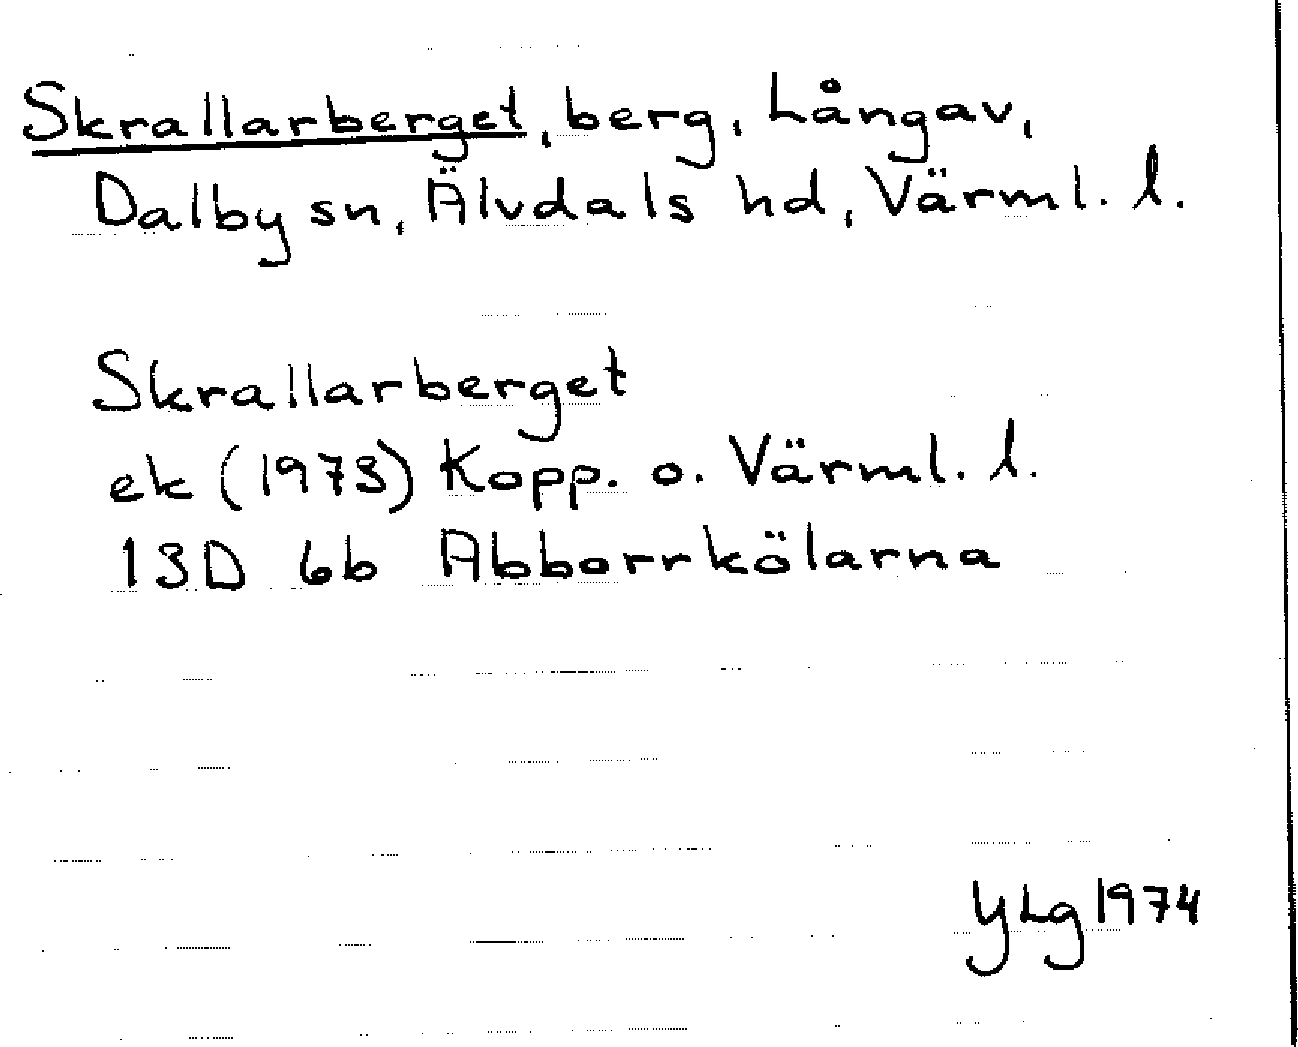 Skrallarberget, berg, Långav,
Dalby sn, Älvdals hd, Värml. l.
Skrallarberget
ek (1973) Kopp. o. Värml. l.
13D 6b Abborrkölarna
YLg 1974